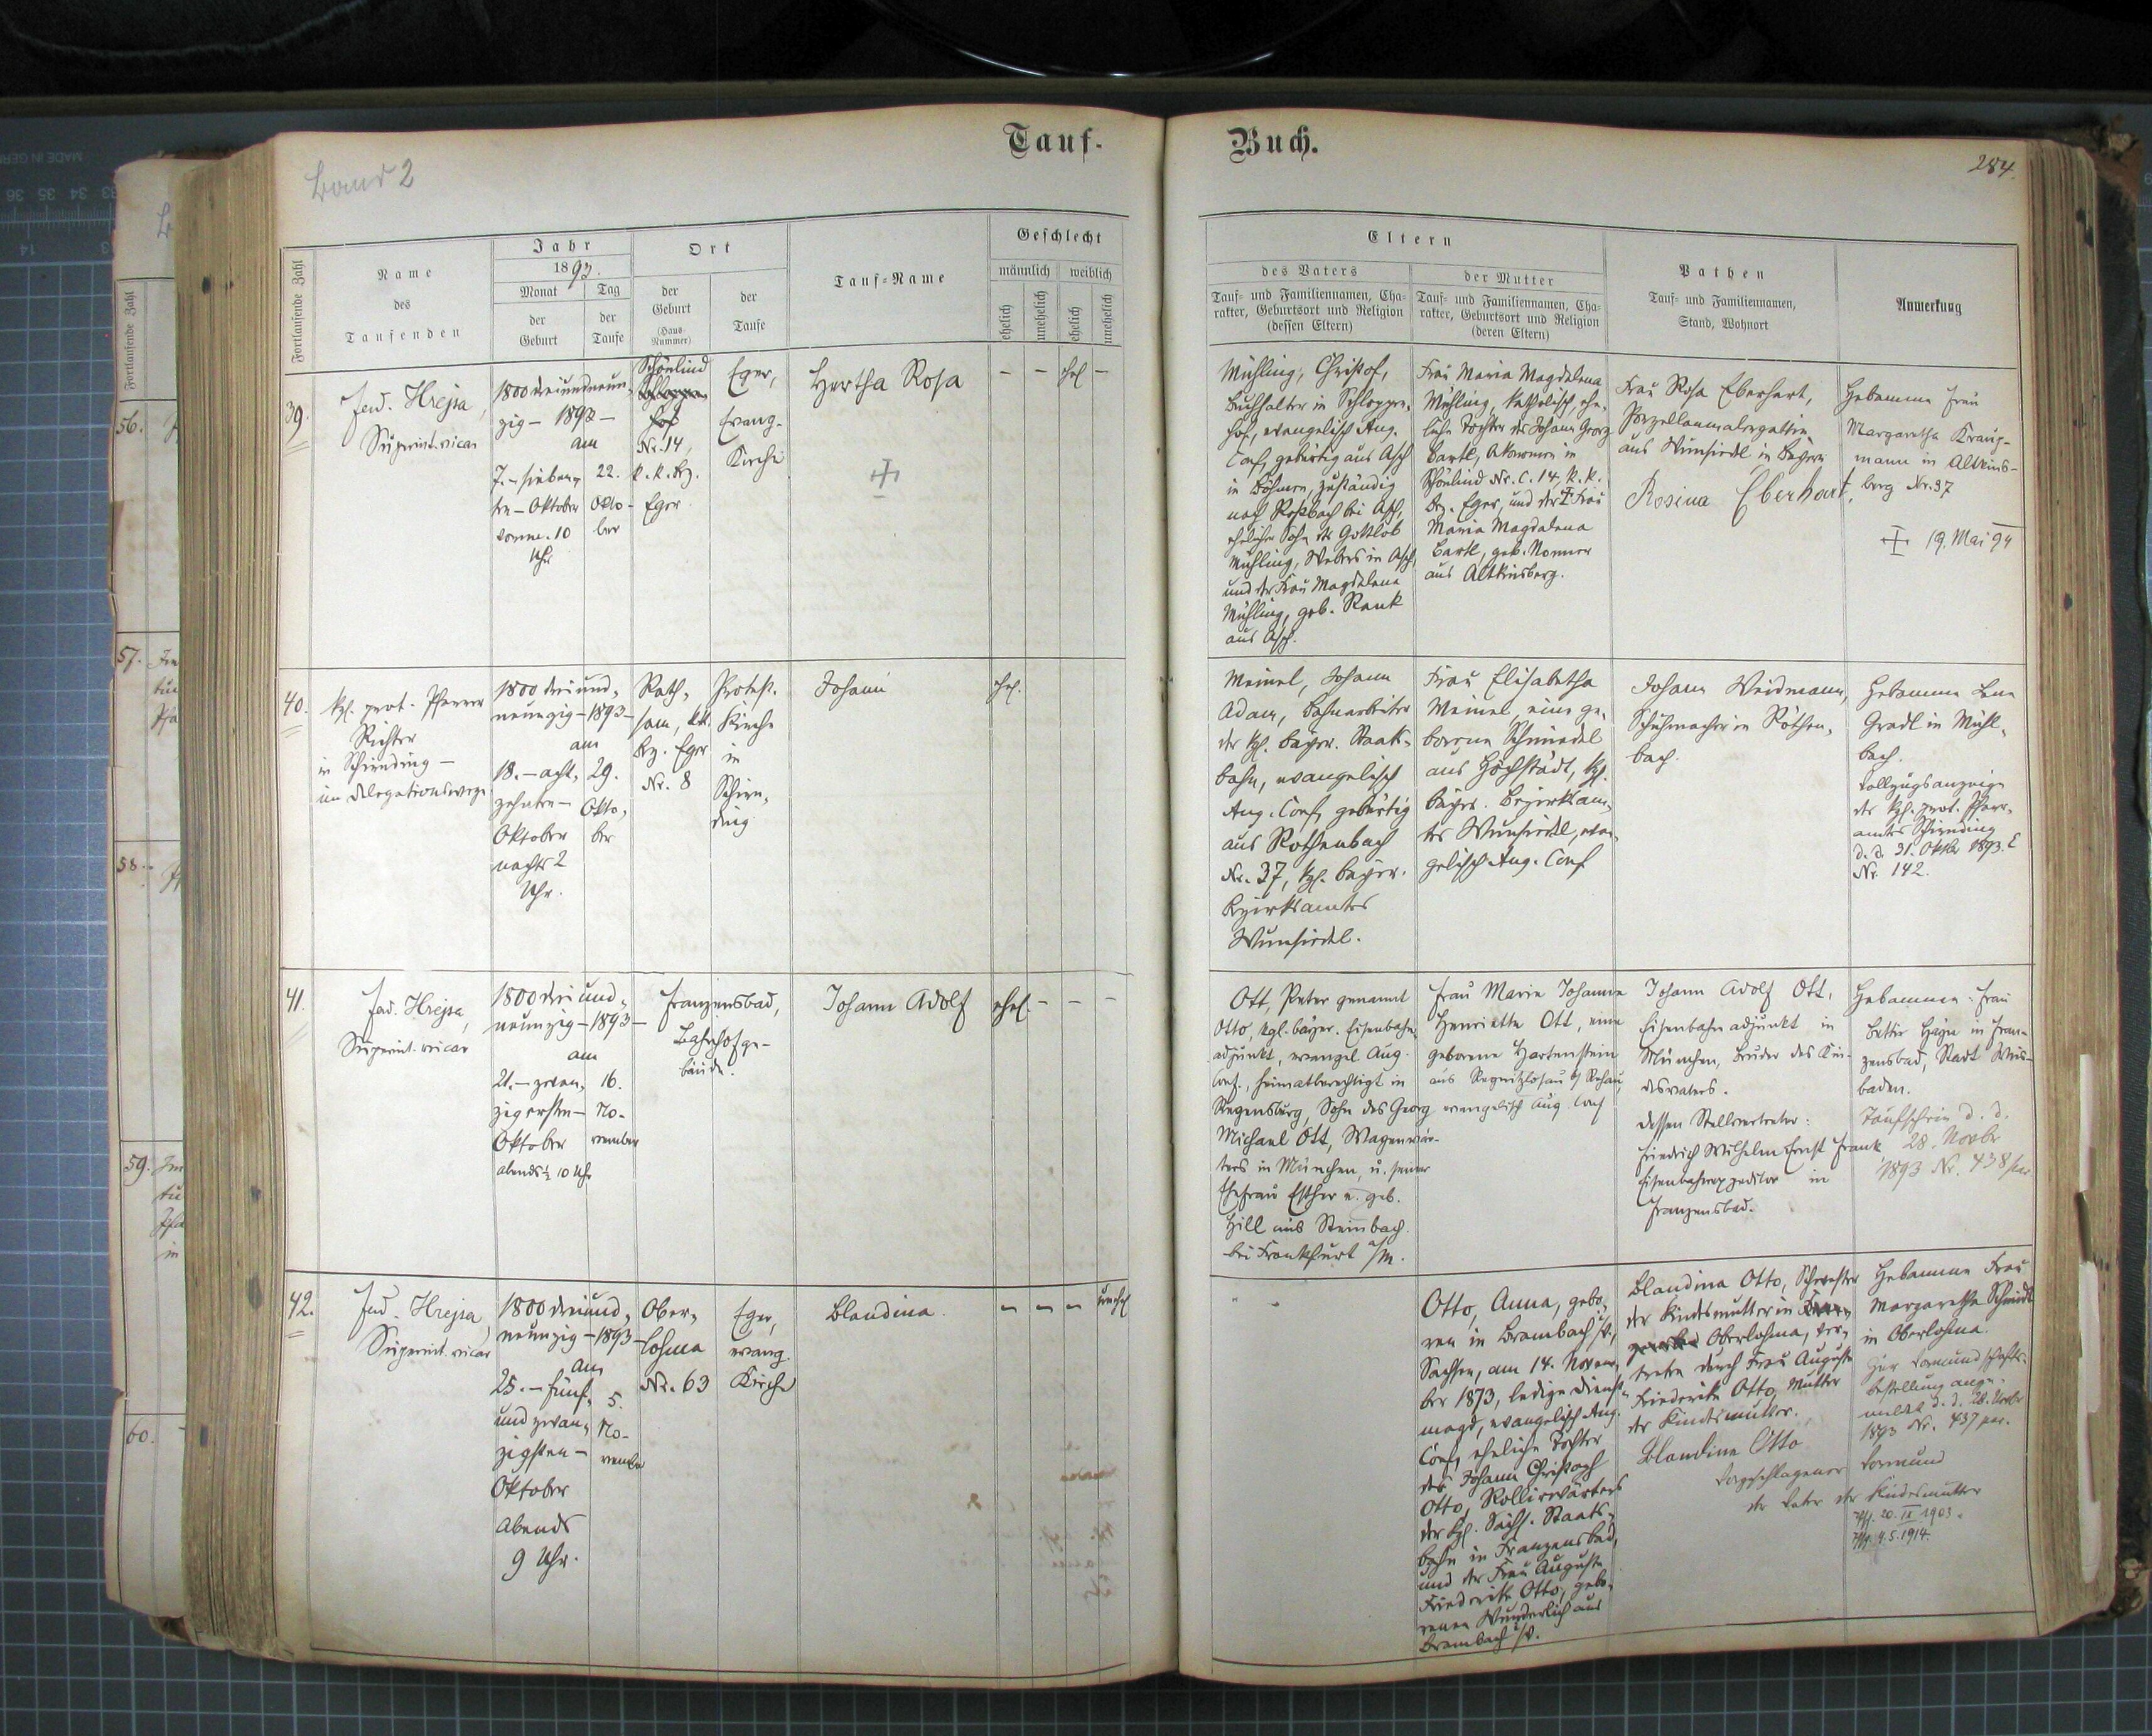 Tauf-
Buch.
Band 2
284.
Fortlaufende Zahl
Name
des
Taufenden
Jahr
1893.
Monat
der
Geburt
Tag
der
Taufe
Ort
der
Geburt
(Haus-
Nummer)
der
Taufe
Tauf-Name
Geschlecht
männlich
weiblich
ehelich
unehelich
ehelich
unehelich
Eltern
des Vaters
Tauf- und Familiennamen, Cha-
rakter, Geburtsort und Religion
(dessen Eltern)
der Mutter
Tauf- und Familiennamen, Cha-
rakter, Geburtsort und Religion
(deren Eltern)
Pathen
Tauf- und Familiennamen,
Stand, Wohnort
Anmerkung
39.
Ferd. Hrejsa,
Superint. vicar
1800 dreiundneun-
zig - 1893 -
am
7. - sieben-
ten - Oktober
vorm. 10
Uhr
22.
Okto-
ber
Schönlind
hof
Nr. 14,
k. k. Bez.
Eger
Eger,
evang.
Kirche
Hertha Rosa
- - ehel -
Mühling, Christof,
Buchhalter in Schloppen-
hof, evangelisch Aug.
Conf, gebürtig aus Asch
in Böhmen, zuständig
nach Roßbach bei Asch,
ehelicher Sohn des Gottlob
Mühling, Webers in Asch,
und der Frau Magdalena
Mühling, geb. Rank
aus Asch.
Frau Maria Magdalena
Mühling, katholisch, ehe-
liche Tochter des Johann Georg
Bartl, Ökonomen in
Schönlind Nr. C. 14, k. k.
Bez. Eger, und der Frau
Maria Magdalena
Bartl, geb. Nonner
aus Altkinsberg.
Frau Rosa Eberhart,
Porzellanmalersgattin
aus Wunsiedel in Bayern
Rosina Eberhart,
Hebamme Frau
Margaretha Kraup-
mann in Altkins-
berg Nr. 37
19. Mai 94
40.
Kgl. prot. Pfarrer
Richter
in Schirnding -
im Delegationswege
1800 dreiund-
neunzig - 1893 -
am
18. - acht-
zehnten -
Oktober
nachts 2
Uhr.
29.
Okto-
ber
Rath-
sam, k.k.
Bez. Eger
Nr. 8
Protest.
Kirche
in
Schirn-
ding
Johann
ehel.
Meinel, Johann
Adam, Bahnarbeiter
der kgl. bayer. Staats-
bahn, evangelisch
Aug. Conf, gebürtig
aus Rothenbach
Nr. 37, kgl. bayer.
Bezirksamtes
Wunsiedel.
Frau Elisabetha
Meinel, eine ge-
borene Schmiedel
aus Höchstädt, kgl.
bayer. Bezirksam-
tes Wunsiedel, evan-
gelisch Aug. Conf
Johann Weidmann,
Schuhmacher in Röthen-
bach.
Hebamme Lena
Gradl in Mühl-
bach.
Vollzugsanzeige
des kgl. prot. Pfarr-
amtes Schirnding
d. d. 31. Oktbr 1893. E
Nr. 142.
41.
Ferd. Hrejsa,
Superint. vicar
1800 dreiund-
neunzig - 1893 -
am
21. - zwan-
zigersten -
Oktober
abends ½ 10 Uhr
16.
No-
vember
Franzensbad,
Bahnhofge-
bäude.
Johann Adolf
ehel. - - -
Ott, Peter genannt
Otto, kgl. bayer. Eisenbahn-
adjunkt, evangel. Aug.
Conf., heimatberechtigt in
Regensburg, Sohn des Georg
Michael Ott, Wagenwär-
ters in München, u. seiner
Ehefrau Esther u. geb.
Hill aus Steinbach
bei Frankfurt a/M.
Frau Marie Johanne
Henriette Ott, eine
geborene Hartenstein
aus Regnitzlosau b/ Rehau,
evangelisch Aug. Conf
Johann Adolf Ott,
Eisenbahnadjunkt in
München, Bruder des Kin-
desvaters.
dessen Stellvertreter:
Friedrich Wilhelm Ernst Frank
Eisenbahnexpeditor in
Franzensbad.
Hebamme: Frau
Betti Heyn in Fran-
zensbad, Stadt Wies-
baden.
Taufschein d. d.
28. Novbr
1893 Nr. 438 par.
42.
Ferd. Hrejsa
Superint. vicar
1800 dreiund-
neunzig - 1893 -
am
25. - fünf-
und zwan-
zigsten -
Oktober
abends
9 Uhr.
5.
No-
vember
Ober-
lohma
Nr. 63
Eger,
evang.
Kirche
Blandina
- - - unehel
Otto, Anna, gebo-
ren in Brambach i/V.,
Sachsen, am 14. Novem-
ber 1873, ledige Dienst-
magd, evangelisch Aug.
Conf, eheliche Tochter
des Johann Christoph
Otto, Rollirwärters
der kgl. Sächs. Staats-
bahn in Franzensbad,
und der Frau Auguste
Friederike Otto, gebo-
renen Wunderlich aus
Brambach i/V.
Blandina Otto, Schwester
der Kindesmutter in
Oberlohma, ver-
treten durch Frau Auguste
Friederike Otto, Mutter
der Kindesmutter.
Blandine Otto
Vorgeschlagener Vormund
der Vater der Kindesmutter
Hebamme Frau
Margaretha Schmidt
in Oberlohma.
Zur Vormundschafts-
bestellung ange-
meldet d. d. 28. Novbr
1893 Nr. 437 par.
20. IX 1903.
4.5.1914.
56.
57.
58.
59.
60.